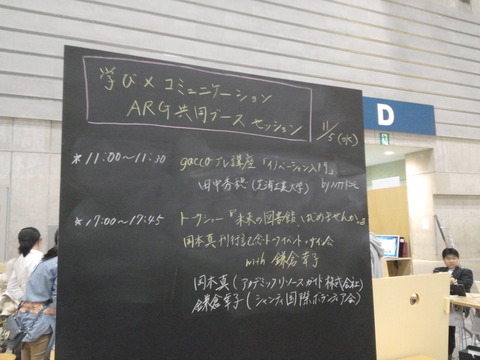 学び×コミュニケーション
ARG共同ブース セッション
11/5(水)
D
*11:00〜11:30 gaccoプレ講座「イノベーション入門」
田中秀穂(芝浦工業大学)
*17:00〜17:45 トークショー『未来の図書館、はじめませんか』
岡本真刊行記念トークイベント・サイン会
with 鎌倉幸子
岡本真(アカデミックリソースガイド株式会社)
鎌倉幸子(シャンティ国際ボランティア会)